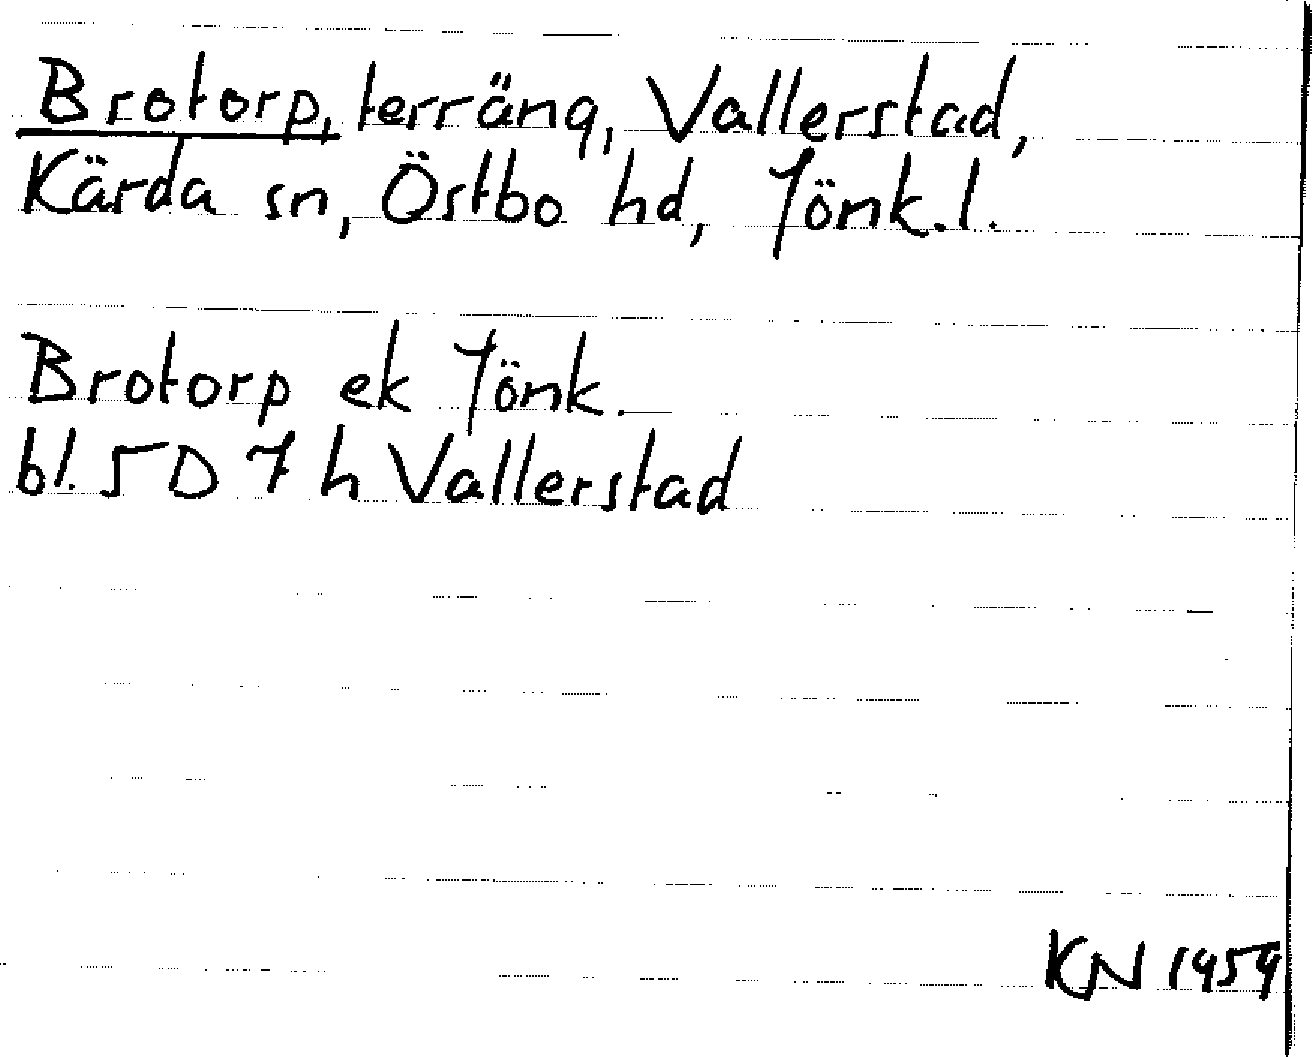 Brotorp, terräng, Vallerstad,
Kärda sn, Östbo hd, Jönk. l.
Brotorp ek Jönk.
bl. 5 D 7 h Vallerstad
KN 1959